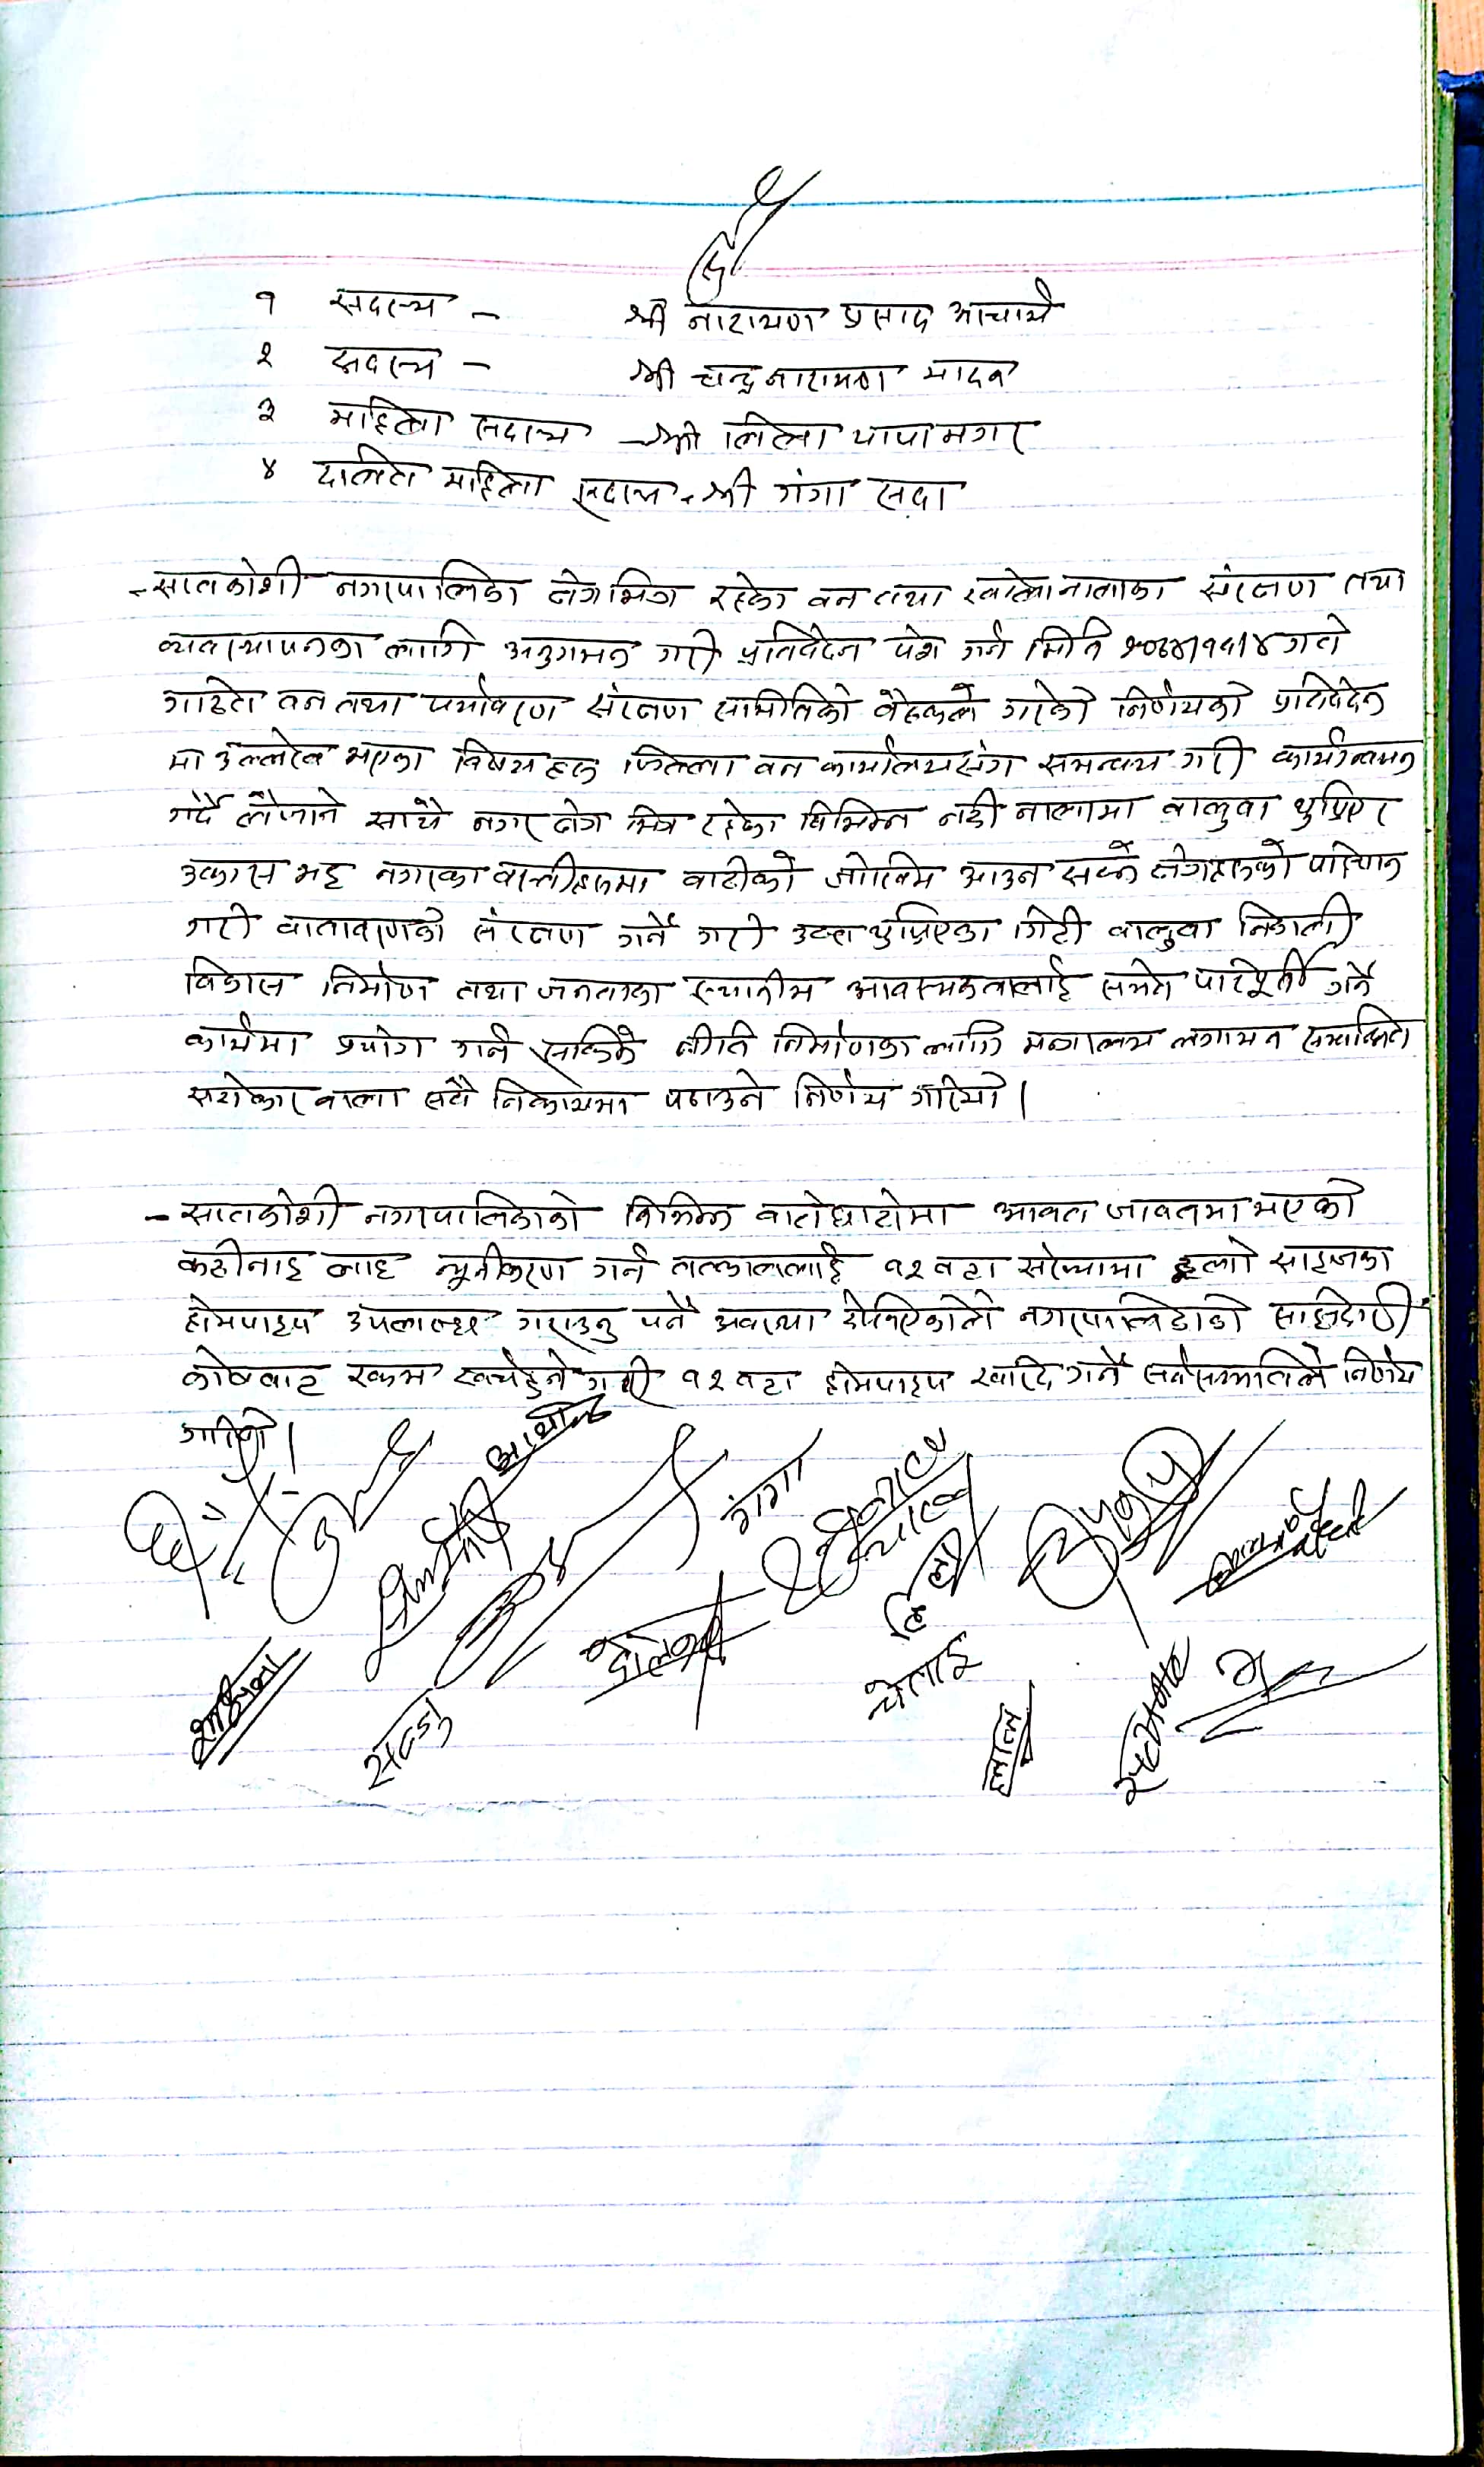 १ सदस्य - श्री नारायण प्रसाद आचार्य
२ सदस्य - श्री चन्द्र नारायण यादव
३ महिला सदस्य - श्री लिला थापा मगर
४ दलित महिला सदस्य - श्री गंगा सदा
- सप्तकोशी नगरपालिका क्षेत्र भित्र रहेका वन तथा खोला नालाका संरक्षण तथा
व्यवस्थापनका लागि अनुगमन गरी प्रतिवेदन पेश गर्न मिति गते
गठित वन तथा पर्यावरण संरक्षण समितिको बैठकले गरेको निर्णयको प्रतिवेदन
मा उल्लेख भएका विषयहरु जिल्ला वन कार्यालयसंग समन्वय गरी कार्यान्वयन
गर्दै लैजाने साथै नगर क्षेत्र भित्र रहेका विभिन्न नदी नालामा वालुवा थुप्रिएर
उकास भइ नगरका वस्तीहरुमा बाढीको जोखिम आउन सक्ने क्षेत्रहरुको पहिचान
गरी वातावरणको संरक्षण गर्ने गरी उक्त थुप्रिएका गिटी वालुवा निकाली
विकास निर्माण तथा जनताका स्थानीय आवश्यकतालाई समेत परिपूर्ती गर्ने
कार्यमा प्रयोग गर्न सकिने नीति निर्माणका लागि मन्त्रालय लगायत सम्वन्धित
सरोकारवाला सवै निकायमा पठाउने निर्णय गरियो।
- सप्तकोशी नगरपालिकाको विभिन्न वाटोघाटोमा आवत जावतमा भएको
कठीनाइ लाइ न्यूनीकरण गर्न तत्काललाई १२ वटा संख्यामा ठूलो साइजका
होमपाइप उपलब्ध गराउनु पर्ने अवस्था देखिएकोले नगरपालिकाको साझेदारी
कोषवाट रकम खर्चहुने गरी १२ वटा होमपाइप खरिद गर्ने सर्वसम्मतिले निर्णय
गरियो।
गंगा